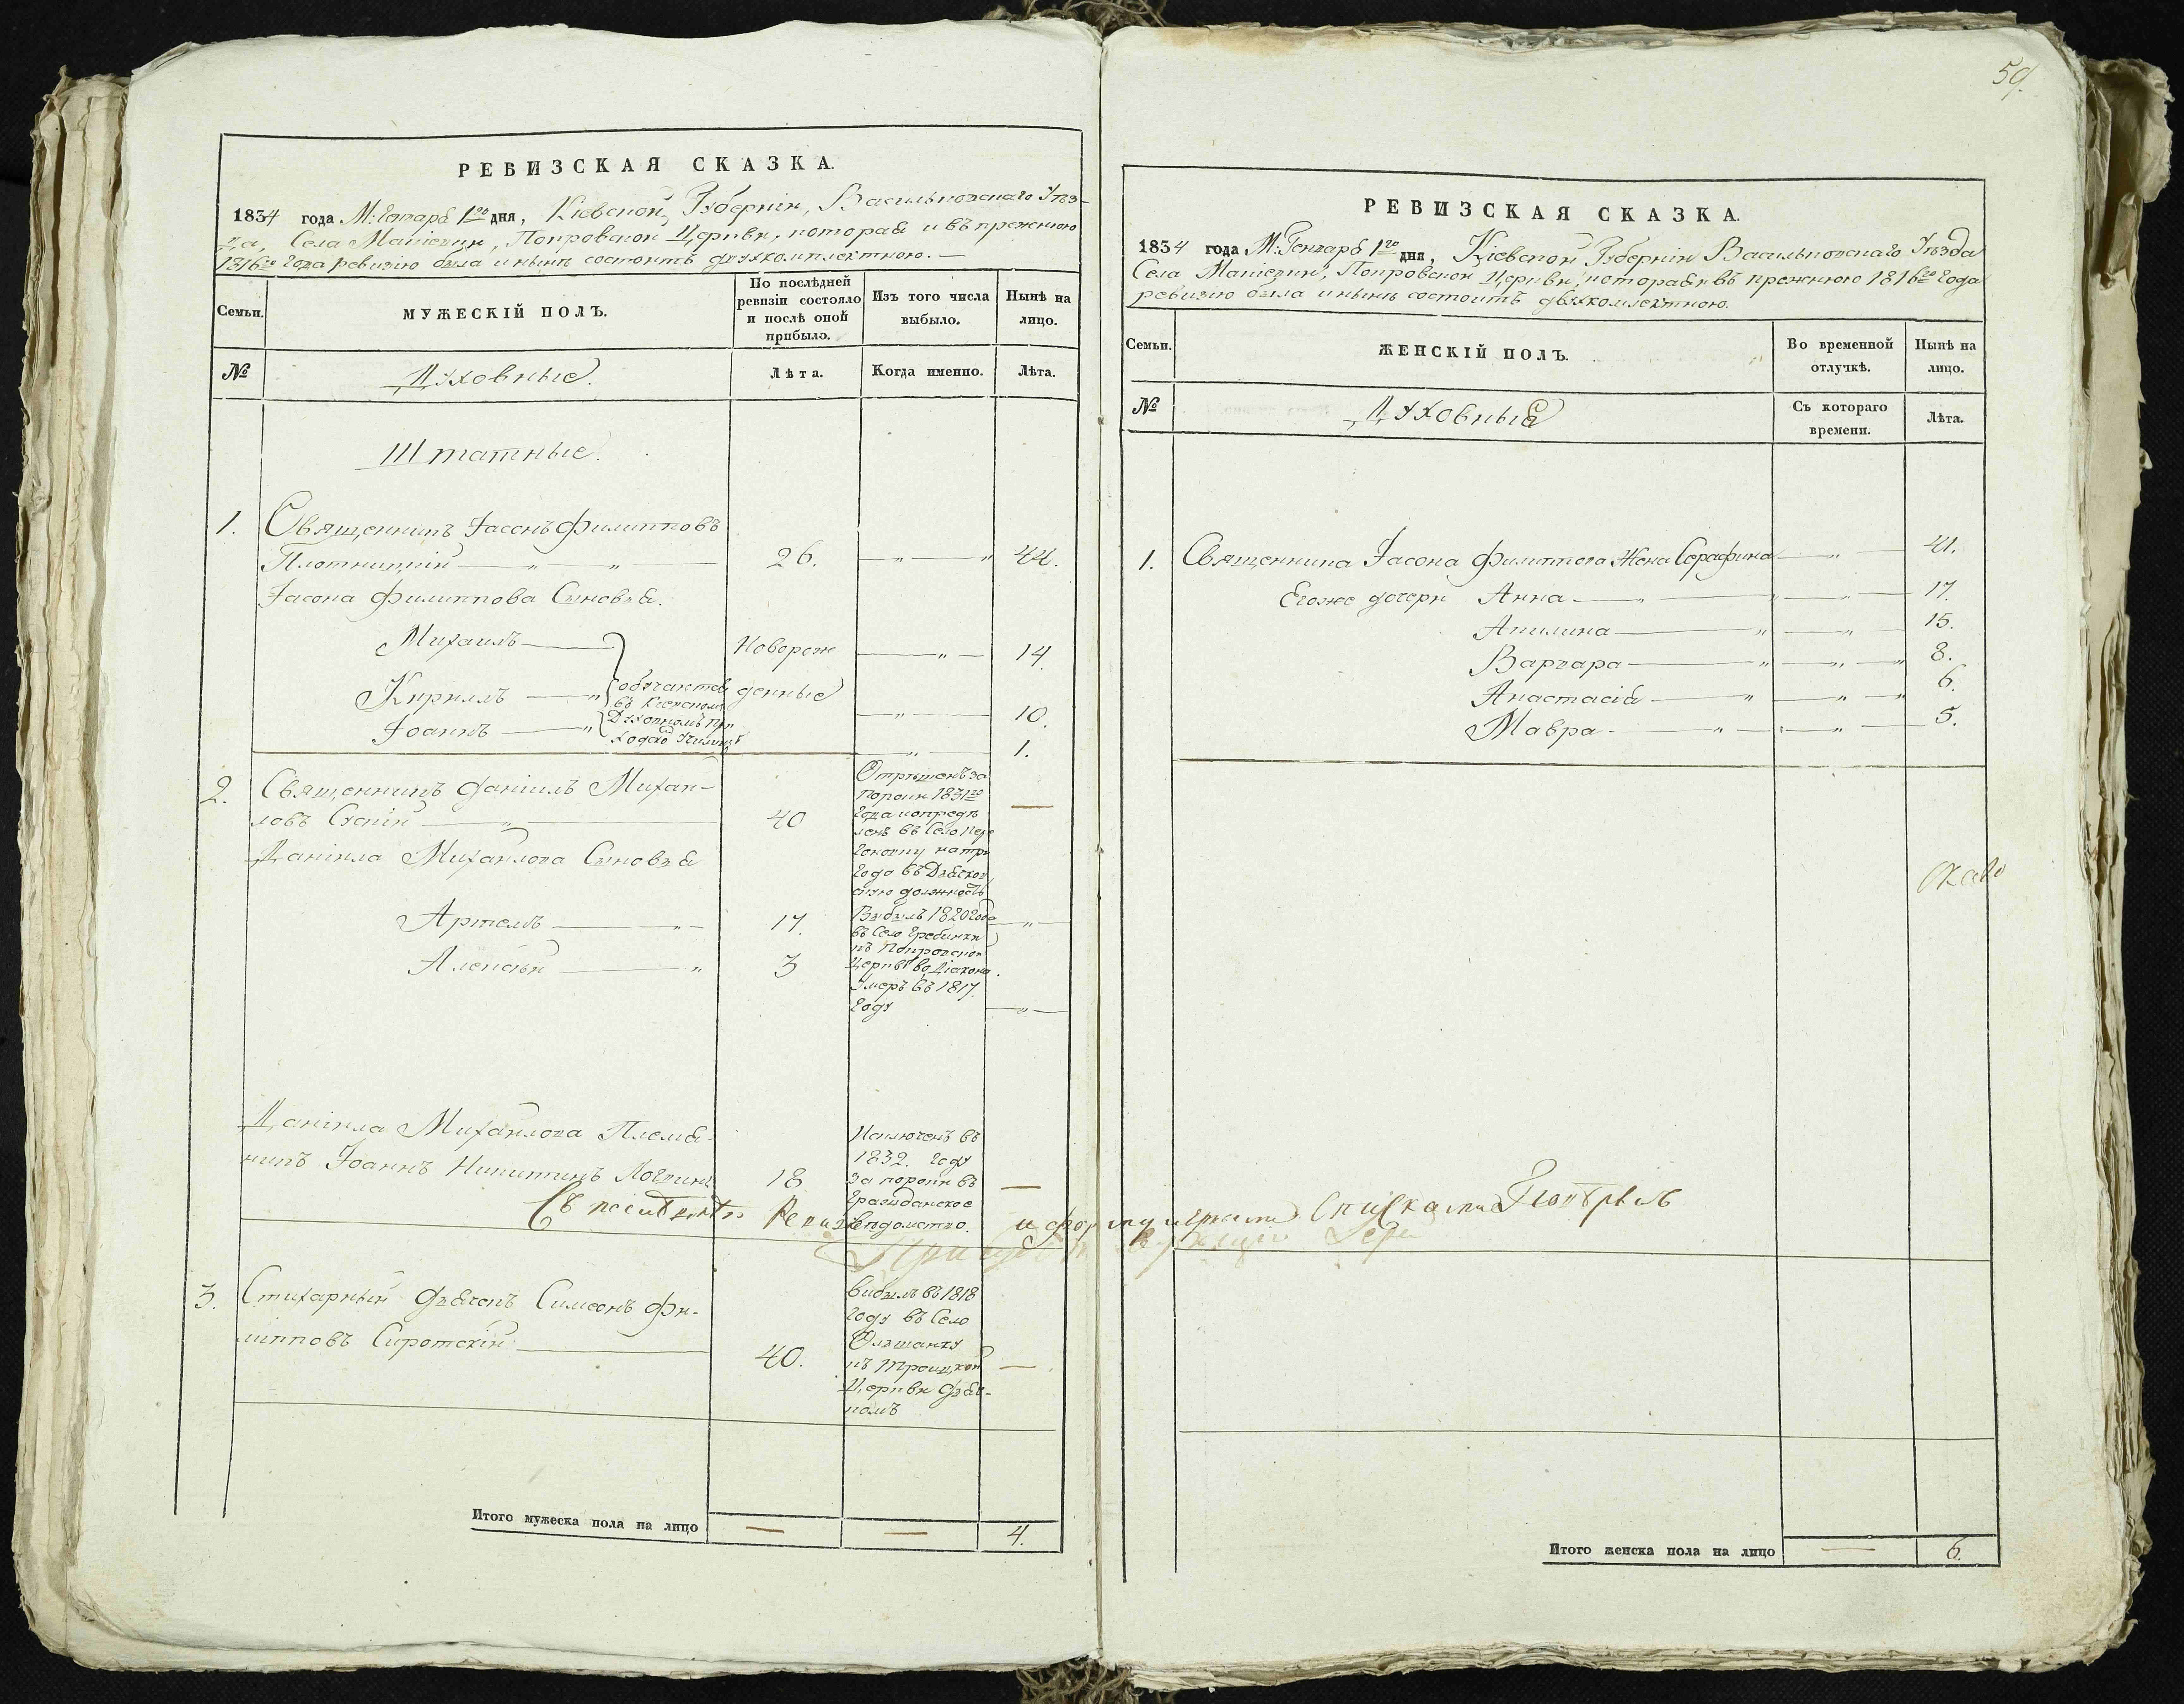 РЕВИЗСКАЯ СКАЗКА.
1834 года М: Генваря 1го дня, Кіевской Губерніи, Васильковскаго Уѣз-
да, Села Матіевки, Покровской Церкви, которая и въ прежнюю
1816го года ревизію была и нынѣ состоитъ двухкомплектною. —
Семьи.
МУЖЕСКІЙ ПОЛЪ.
По послѣдней
ревизіи состояло
и послѣ оной
прибыло.
Изъ того числа
выбыло.
Нынѣ на
лицо.
№
Духовные.
Лѣта.
Когда именно.
Лѣта.
Штатные.
1. Священникъ Іасонъ Филипповъ
Плотницкій — " — " — 26. — " — " 44.
Іасона Филиппова Сыновья.
Михаилъ — Новорож — " — 14.
Кирилъ — " обучаются денные
въ Кіевскомъ
Іоаннъ — " Духовномъ При — " — 10.
ходско Училищѣ
— " — 1.
2. Священникъ Даніилъ Михаи-
ловъ — " — 40 —
Отрѣшенъ за
пороки 1831го
года и опредѣ
ленъ въ Село
на три
года въ Дьячков
скую должность
Даніила Михайлова Сыновья
Артемъ — " — 17. — " —
Выбылъ 1820 года
въ Село Гребинки
къ Покровской
Церквѣ во Діакона.
Алексѣй — " 3
Умеръ въ 1817.
году — " —
Даніила Михайлова Племя-
никъ Іоаннъ Никитинъ 18 —
Исключенъ въ
1832. году
за пороки въ
Гражданское
вѣдомство.
3. Стихарный Дьячокъ Симеонъ Фи-
липповъ Сиротскій — 40. —
Выбылъ въ 1818
году въ Село
Ольшанку
къ Троицкой
Церкви Дьяч-
комъ
Итого мужеска пола на лицо — — 4.
59.
РЕВИЗСКАЯ СКАЗКА.
1834 года М: Генваря 1го дня, Кіевской Губерніи Васильковскаго Уѣзда
Села Матіевки, Покровской Церкви, которая и въ прежнюю 1816го года
ревизію была и нынѣ состоитъ двухкомлектною.
Семьи.
ЖЕНСКІЙ ПОЛЪ.
Во временной
отлучкѣ.
Нынѣ на
лицо.
№
Духовныя
Съ котораго
времени.
Лѣта.
1. Священника Іасона Филиппова Жена Серафима — " — 41.
Егоже дочери Анна — " — " — " — 17.
Акилина — " — " — 15.
Варвара — " — " — " 8.
Анастасія — " — " — " 6.
Мавра — " — " — " — 5.
Итого женска пола на лицо — 6.